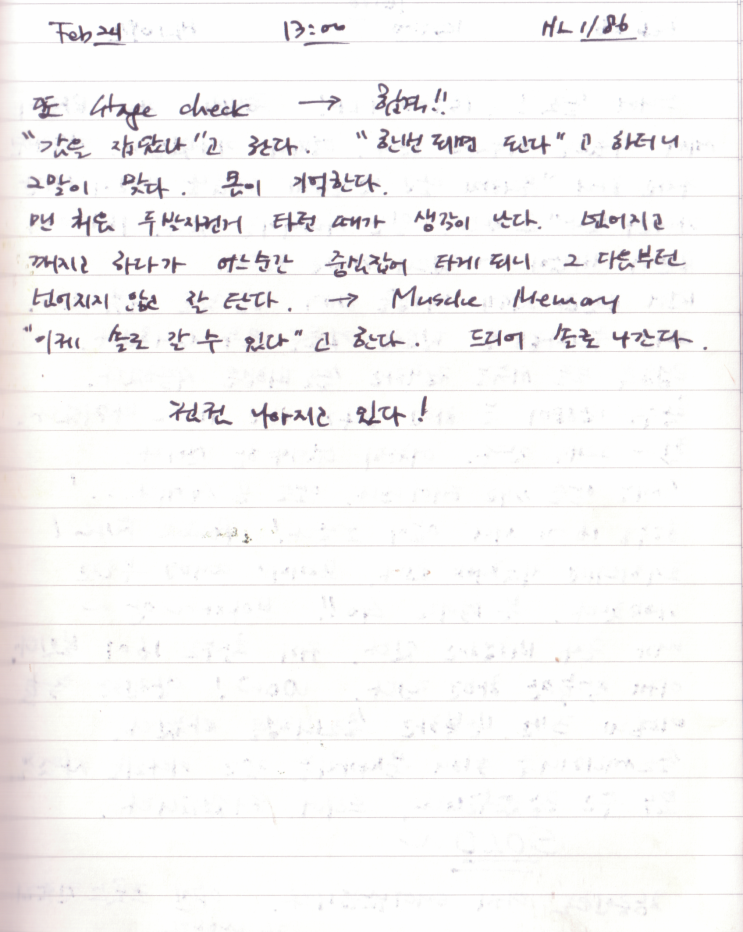 Feb 24 13:00 HL 1/86
또 Stage check → 합격!!
"감을 잡았다"고 한다. "한번 되면 된다"고 하더니
그말이 맞다. 몸이 기억한다.
맨 처음 두발자전거 타던 때가 생각이 난다. 넘어지고
깨지고 하다가 어느순간 중심잡어 타게 되니 그 다음부턴
넘어지지 않고 잘 탄다. → Muscle Memory
"이제 솔로 갈 수 있다"고 한다. 드디어 솔로 나간다.
점점 나아지고 있다!